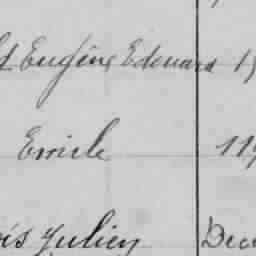 Eugène Edouard 19
Emile 119
is Julien Dec